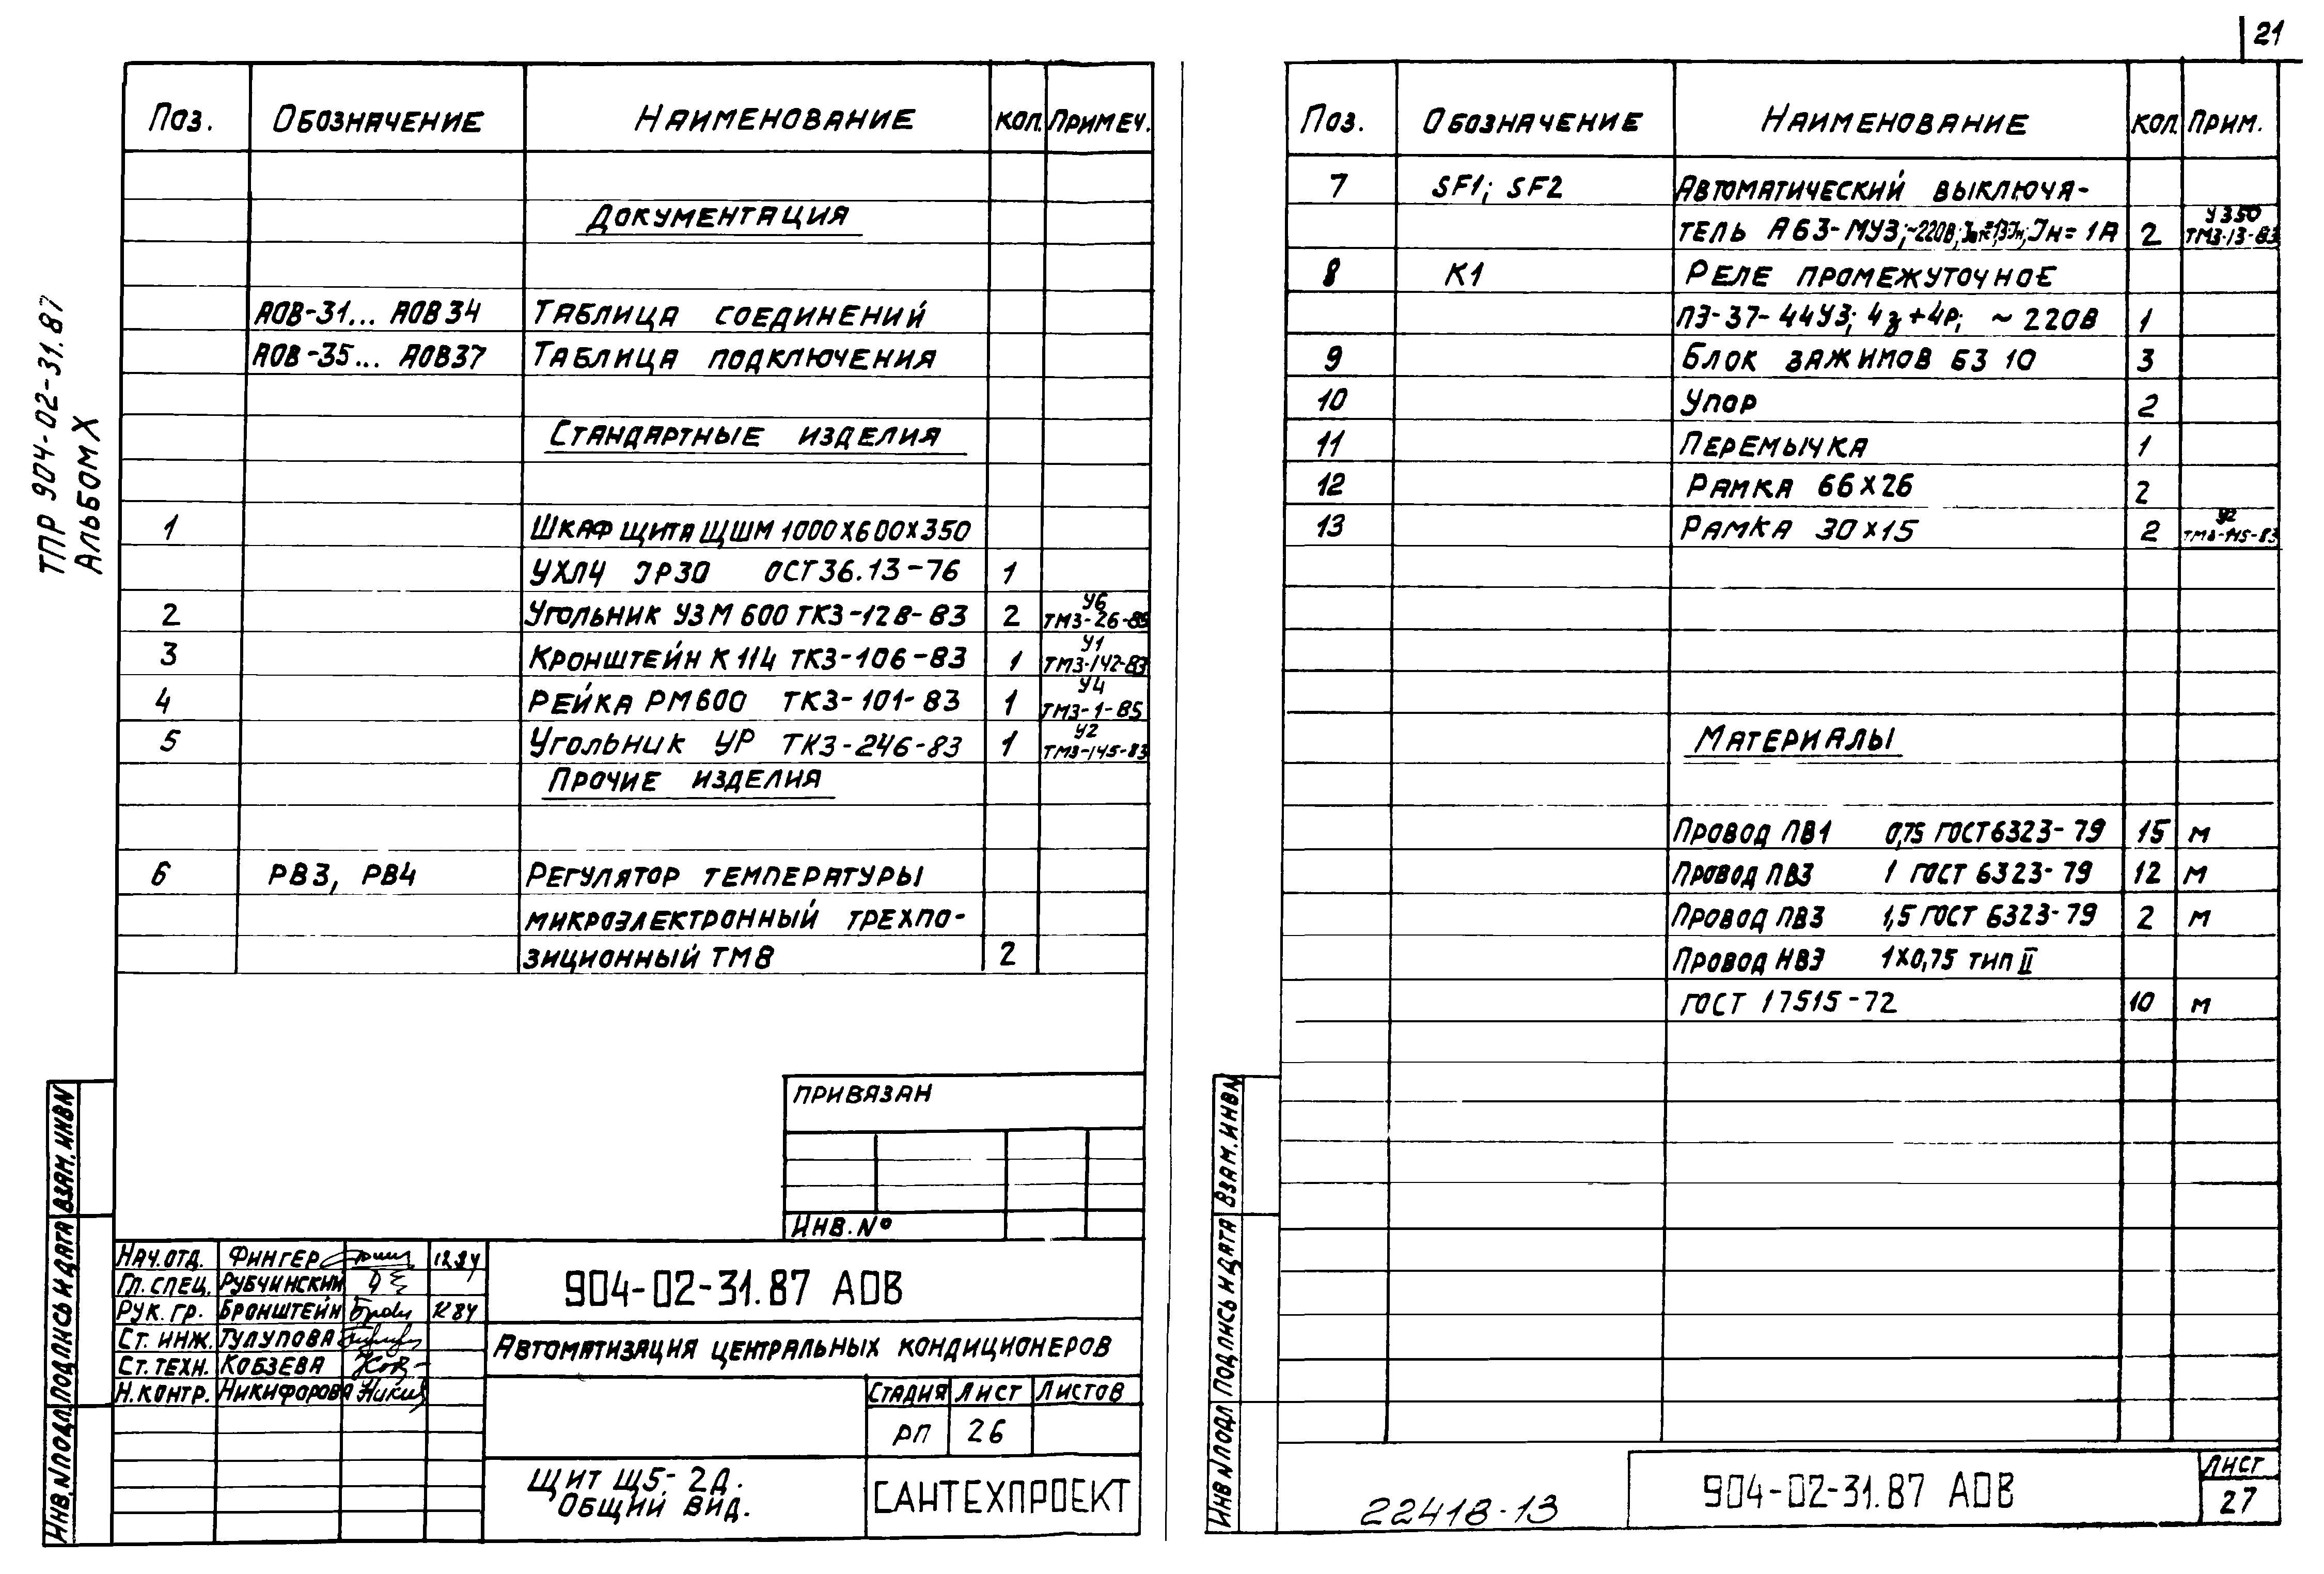 21
ТПР 904-02-31.87
Альбом X
Поз. Обозначение Наименование кол. Примеч.
Документация
АОВ-31... АОВ34 Таблица соединений
АОВ-35... АОВ37 Таблица подключения
Стандартные изделия
1 Шкаф щита ЩШМ 1000х600х350
УХЛ4 IP30 ОСТ36.13-76 1
2 Угольник УЗМ 600 ТК3-128-83 2 У6 ТМ3-26-85
3 Кронштейн К114 ТК3-106-83 1 У1 ТМ3-142-83
4 Рейка РМ600 ТК3-101-83 1 У4 ТМ3-1-85
5 Угольник УР ТК3-246-83 1 У2 ТМ3-145-83
Прочие изделия
6 РВ3, РВ4 Регулятор температуры
микроэлектронный трехпо-
зиционный ТМ8 2
Привязан
Инв. №
Нач. отд. Фингер 12.84
Гл. спец. Рубчинский
Рук. гр. Бронштейн 12.84
Ст. инж. Тулупова
Ст. техн. Кобзева
Н. контр. Никифорова
904-02-31.87 АОВ
Автоматизация центральных кондиционеров
Стадия Лист Листов
РП 26
Щит Щ5-2Д.
Общий вид.
САНТЕХПРОЕКТ
Инв. N подл. Подпись и дата Взам. инв N
Поз. Обозначение Наименование кол. Прим.
7 SF1; SF2 Автоматический выключа-
тель А63-МУ3; ~220В; Iн = 1А 2 У350 ТМ3-13-83
8 К1 Реле промежуточное
ПЭ-37-44У3; 4з+4р; ~220В 1
9 Блок зажимов БЗ 10 3
10 Упор 2
11 Перемычка 1
12 Рамка 66х26 2
13 Рамка 30х15 2 У2 ТМ3-145-83
Материалы
Провод ПВ1 0,75 ГОСТ 6323-79 15 м
Провод ПВ3 1 ГОСТ 6323-79 12 м
Провод ПВ3 1,5 ГОСТ 6323-79 2 м
Провод НВЭ 1х0,75 тип II
ГОСТ 17515-72 10 м
Инв. N подл Подпись и дата Взам. инв N
22418-13
904-02-31.87 АОВ
Лист
27